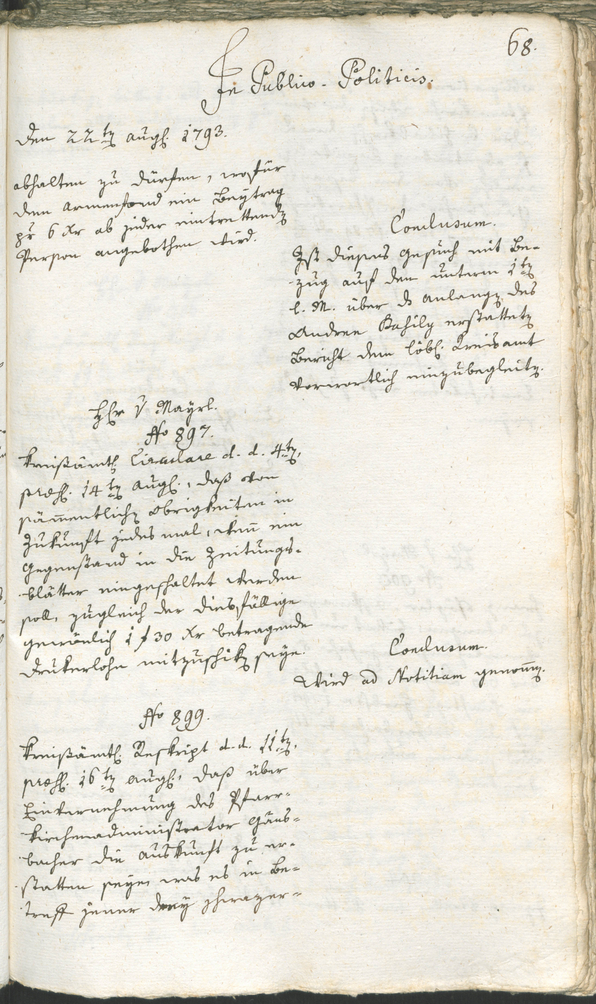 68.
In Publico-Politicis.
den 22tn Augs. 1793.
abhalten zu dürfen, wofür
dem Armenfond ein Beytrag
pr 6 Xr ab jeder eintrettendn
Person angebothen wird.
Conclusum.
Ist dieses Gesuch mit Be-
zug auf den unterm 1tn
l. M. über anlangn des
Andree erstattetn
Bericht dem löbl. Kreisamt
vorwortlich einzubegleitn.
H v Mayrl.
No 897.
kreisämtl. Circulare d. d. 4tn,
præs. 14tn Augs., daß von
sämentlichn Obrigkeiten in
Zukunft jedes mal, wenn ein
Gegenstand in die Zeitungs-
blätter eingeschaltet werden
soll, zugleich der diesfällige
gewönlich 1 f 30 Xr betragende
Drukerlohn mitzuschikn seye.
Conclusum.
Wird ad Notitiam genomn.
No 899.
kreisämtl. Reskript d. d. 11tn,
præs. 16tn Augs., daß über
Einvernehmung des Pfarr-
kirchenadministrator Gäns-
bacher die Auskunft zu er-
statten seye, was es in Be-
treff jener